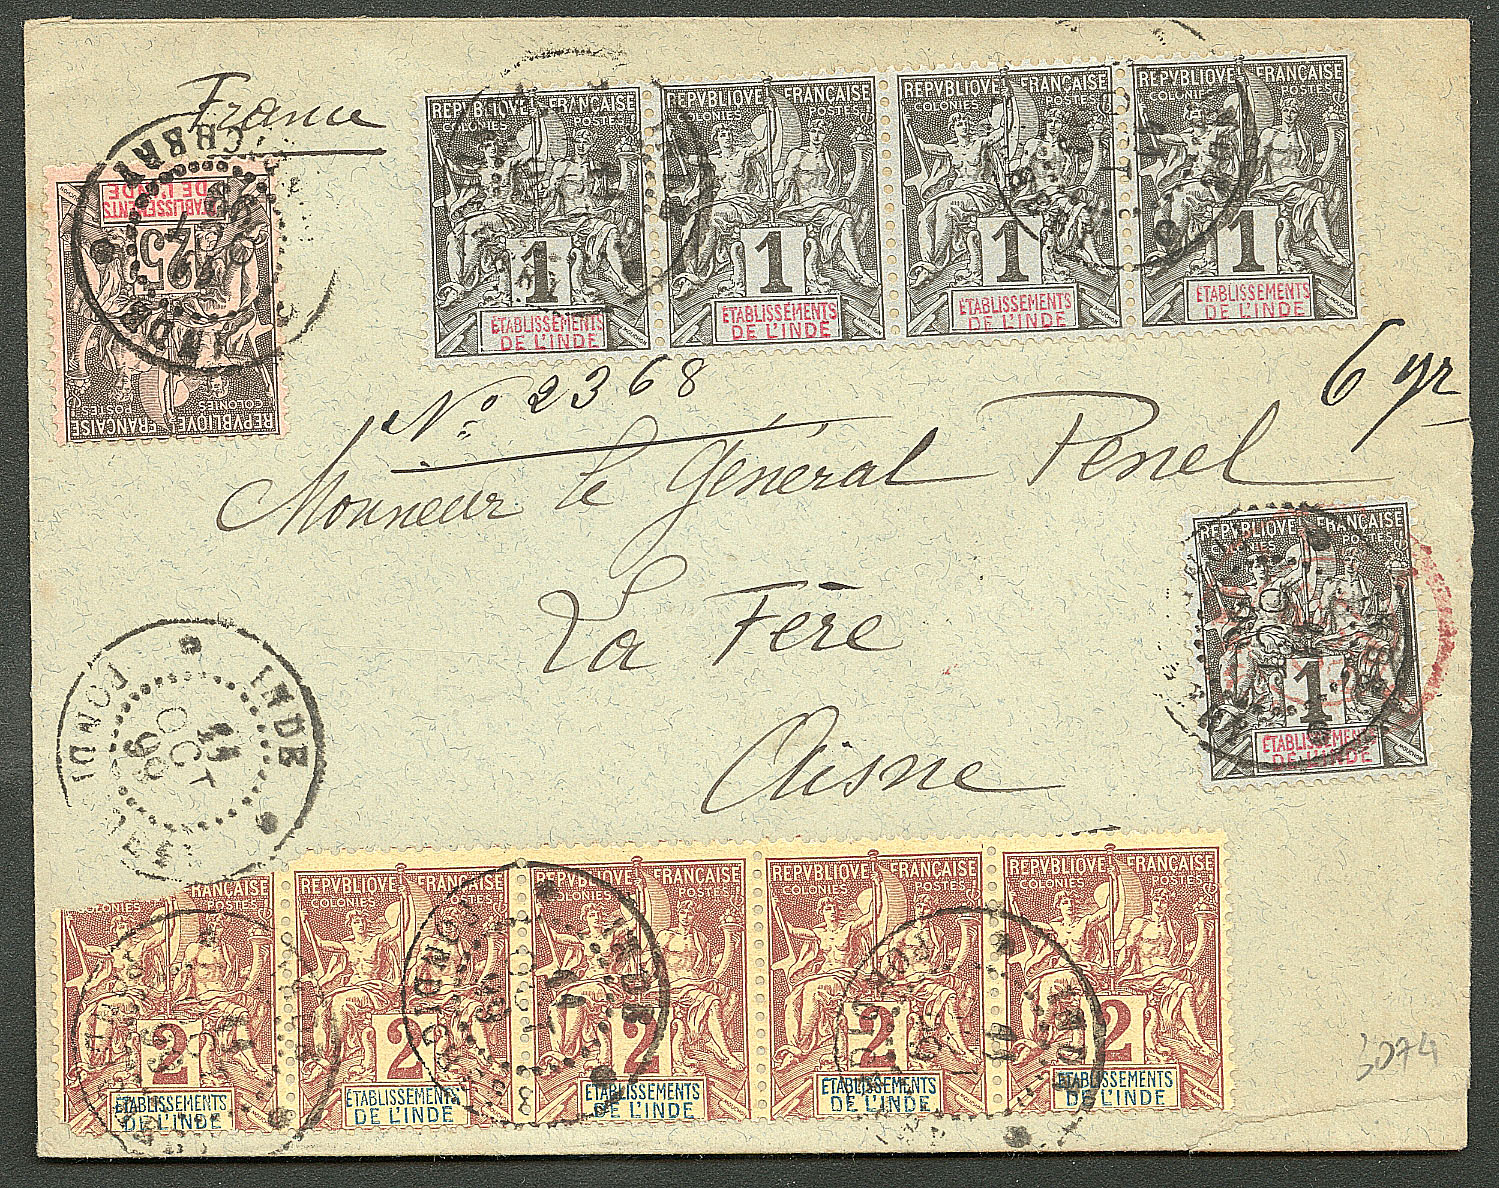 France
REPVBLIQVE FRANÇAISE REPVBLIQVE FRANÇAISE REPVBLIQVE FRANÇAISE REPVBLIQVE FRANÇAISE
COLONIES POSTES COLONIES POSTES COLONIES POSTES COLONIES POSTES
1 1 1 1
ÉTABLISSEMENTS ÉTABLISSEMENTS ÉTABLISSEMENTS ÉTABLISSEMENTS
DE L'INDE DE L'INDE DE L'INDE DE L'INDE
REPVBLIQVE FRANÇAISE
COLONIES POSTES
25
ÉTABLISSEMENTS
DE L'INDE
INDE
No 2368
6 gr
Monsieur le Général Penel
La Fère
Aisne
REPVBLIQVE FRANÇAISE
COLONIES POSTES
1
ÉTABLISSEMENTS
DE L'INDE
MOUCHON
INDE
11
OCT
99
PONDI
FRANÇAISE REPVBLIQVE FRANÇAISE REPVBLIQVE FRANÇAISE REPVBLIQVE FRANÇAISE REPVBLIQVE FRANÇAISE
COLONIES POSTES COLONIES POSTES COLONIES POSTES COLONIES POSTES COLONIES POSTES
2 2 2 2 2
ÉTABLISSEMENTS ÉTABLISSEMENTS ÉTABLISSEMENTS ÉTABLISSEMENTS ÉTABLISSEMENTS
DE L'INDE DE L'INDE DE L'INDE DE L'INDE DE L'INDE
3074